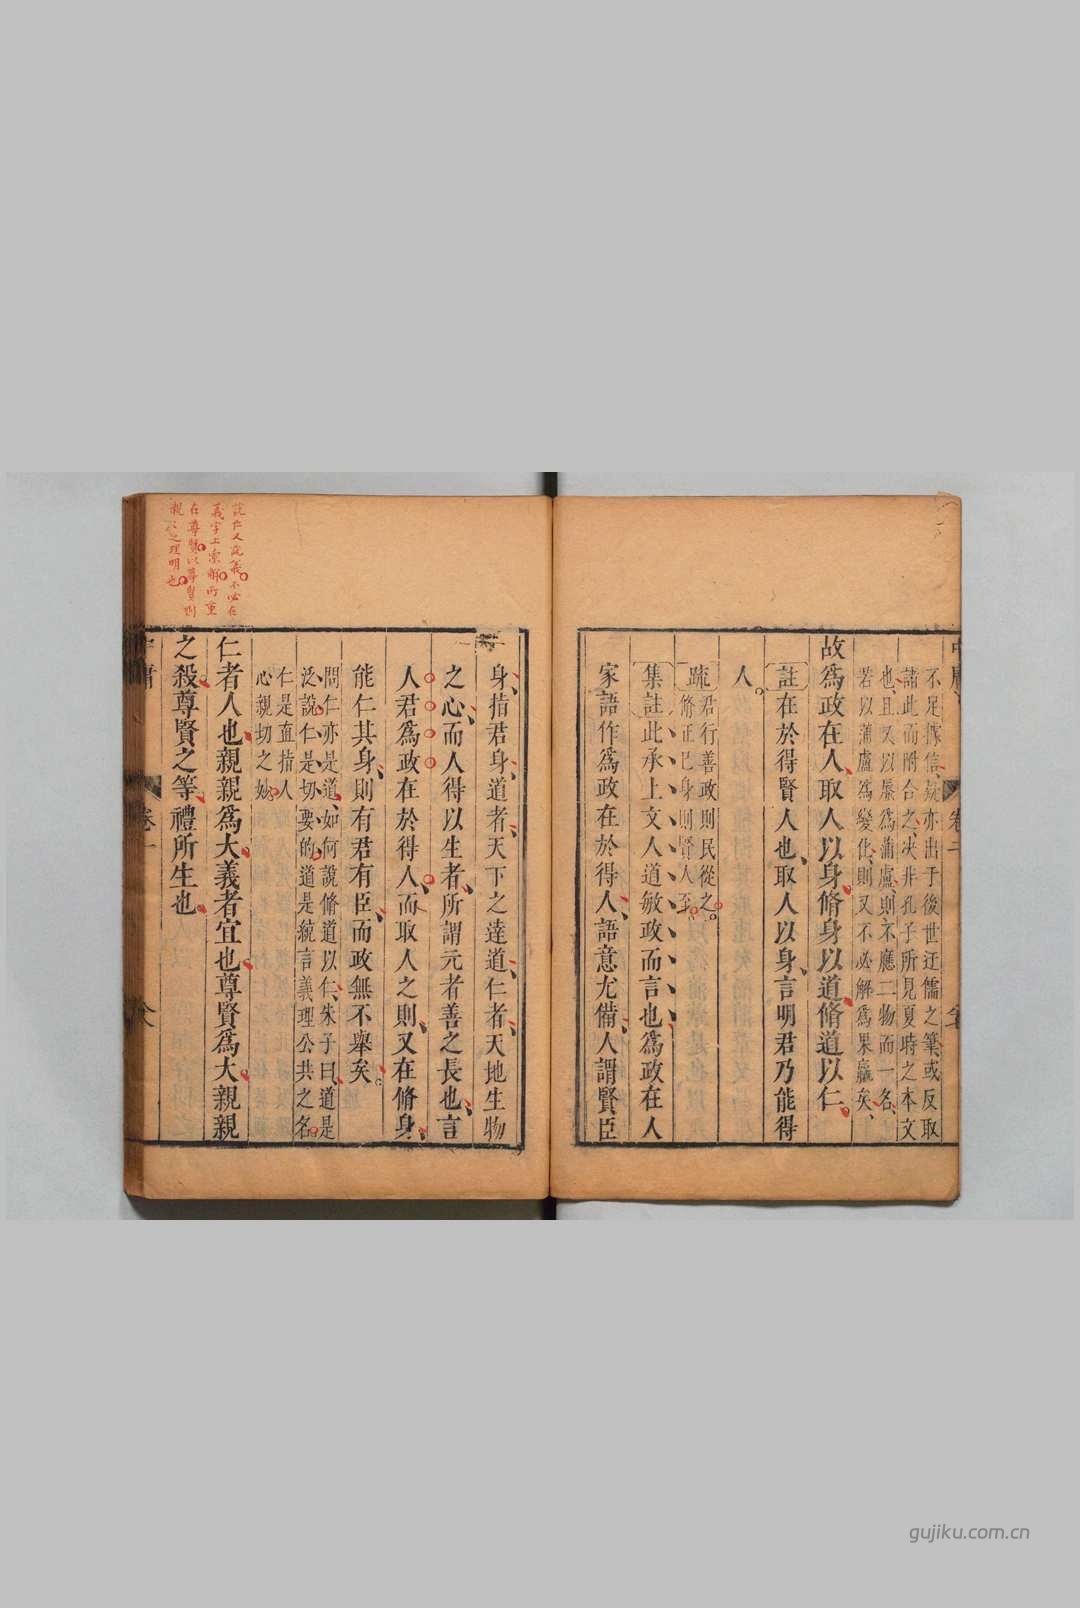 不足據信、疑亦出于後世迂儒之筆、或反取
諸此而附合之、决非孔子所見夏時之本文
也、且又以蜃為蒲盧、則不應二物而一名、
若以蒲盧為變化、則又不必解為果蠃矣、
故為政在人、取人以身、脩身以道、脩道以仁。
註在於得賢人也、取人以身、言明君乃能得
人。
疏君行善政則民從之。
脩正己身則賢人至。
集註此承上文人道敏政而言也、為政在人
家語作為政在於得人、語意尤備、人謂賢臣
身指君身、道者、天下之達道、仁者、天地生物
之心、而人得以生者、所謂元者善之長也、言
人君為政在於得人、而取人之則、又在脩身、
能仁其身、則有君有臣、而政無不舉矣。
問仁亦是道、如何說脩道以仁、朱子曰、道是
泛說、仁是切要的、道是統言義理公共之名。
仁是直指人
心親切之妙。
仁者人也、親親為大、義者宜也、尊賢為大。親親
之殺、尊賢之等、禮所生也。
說仁又說義、不必在
義字上索解、所重
在尊賢、以尊賢則
親親之理明也
中庸
卷二
gujiku.com.cn